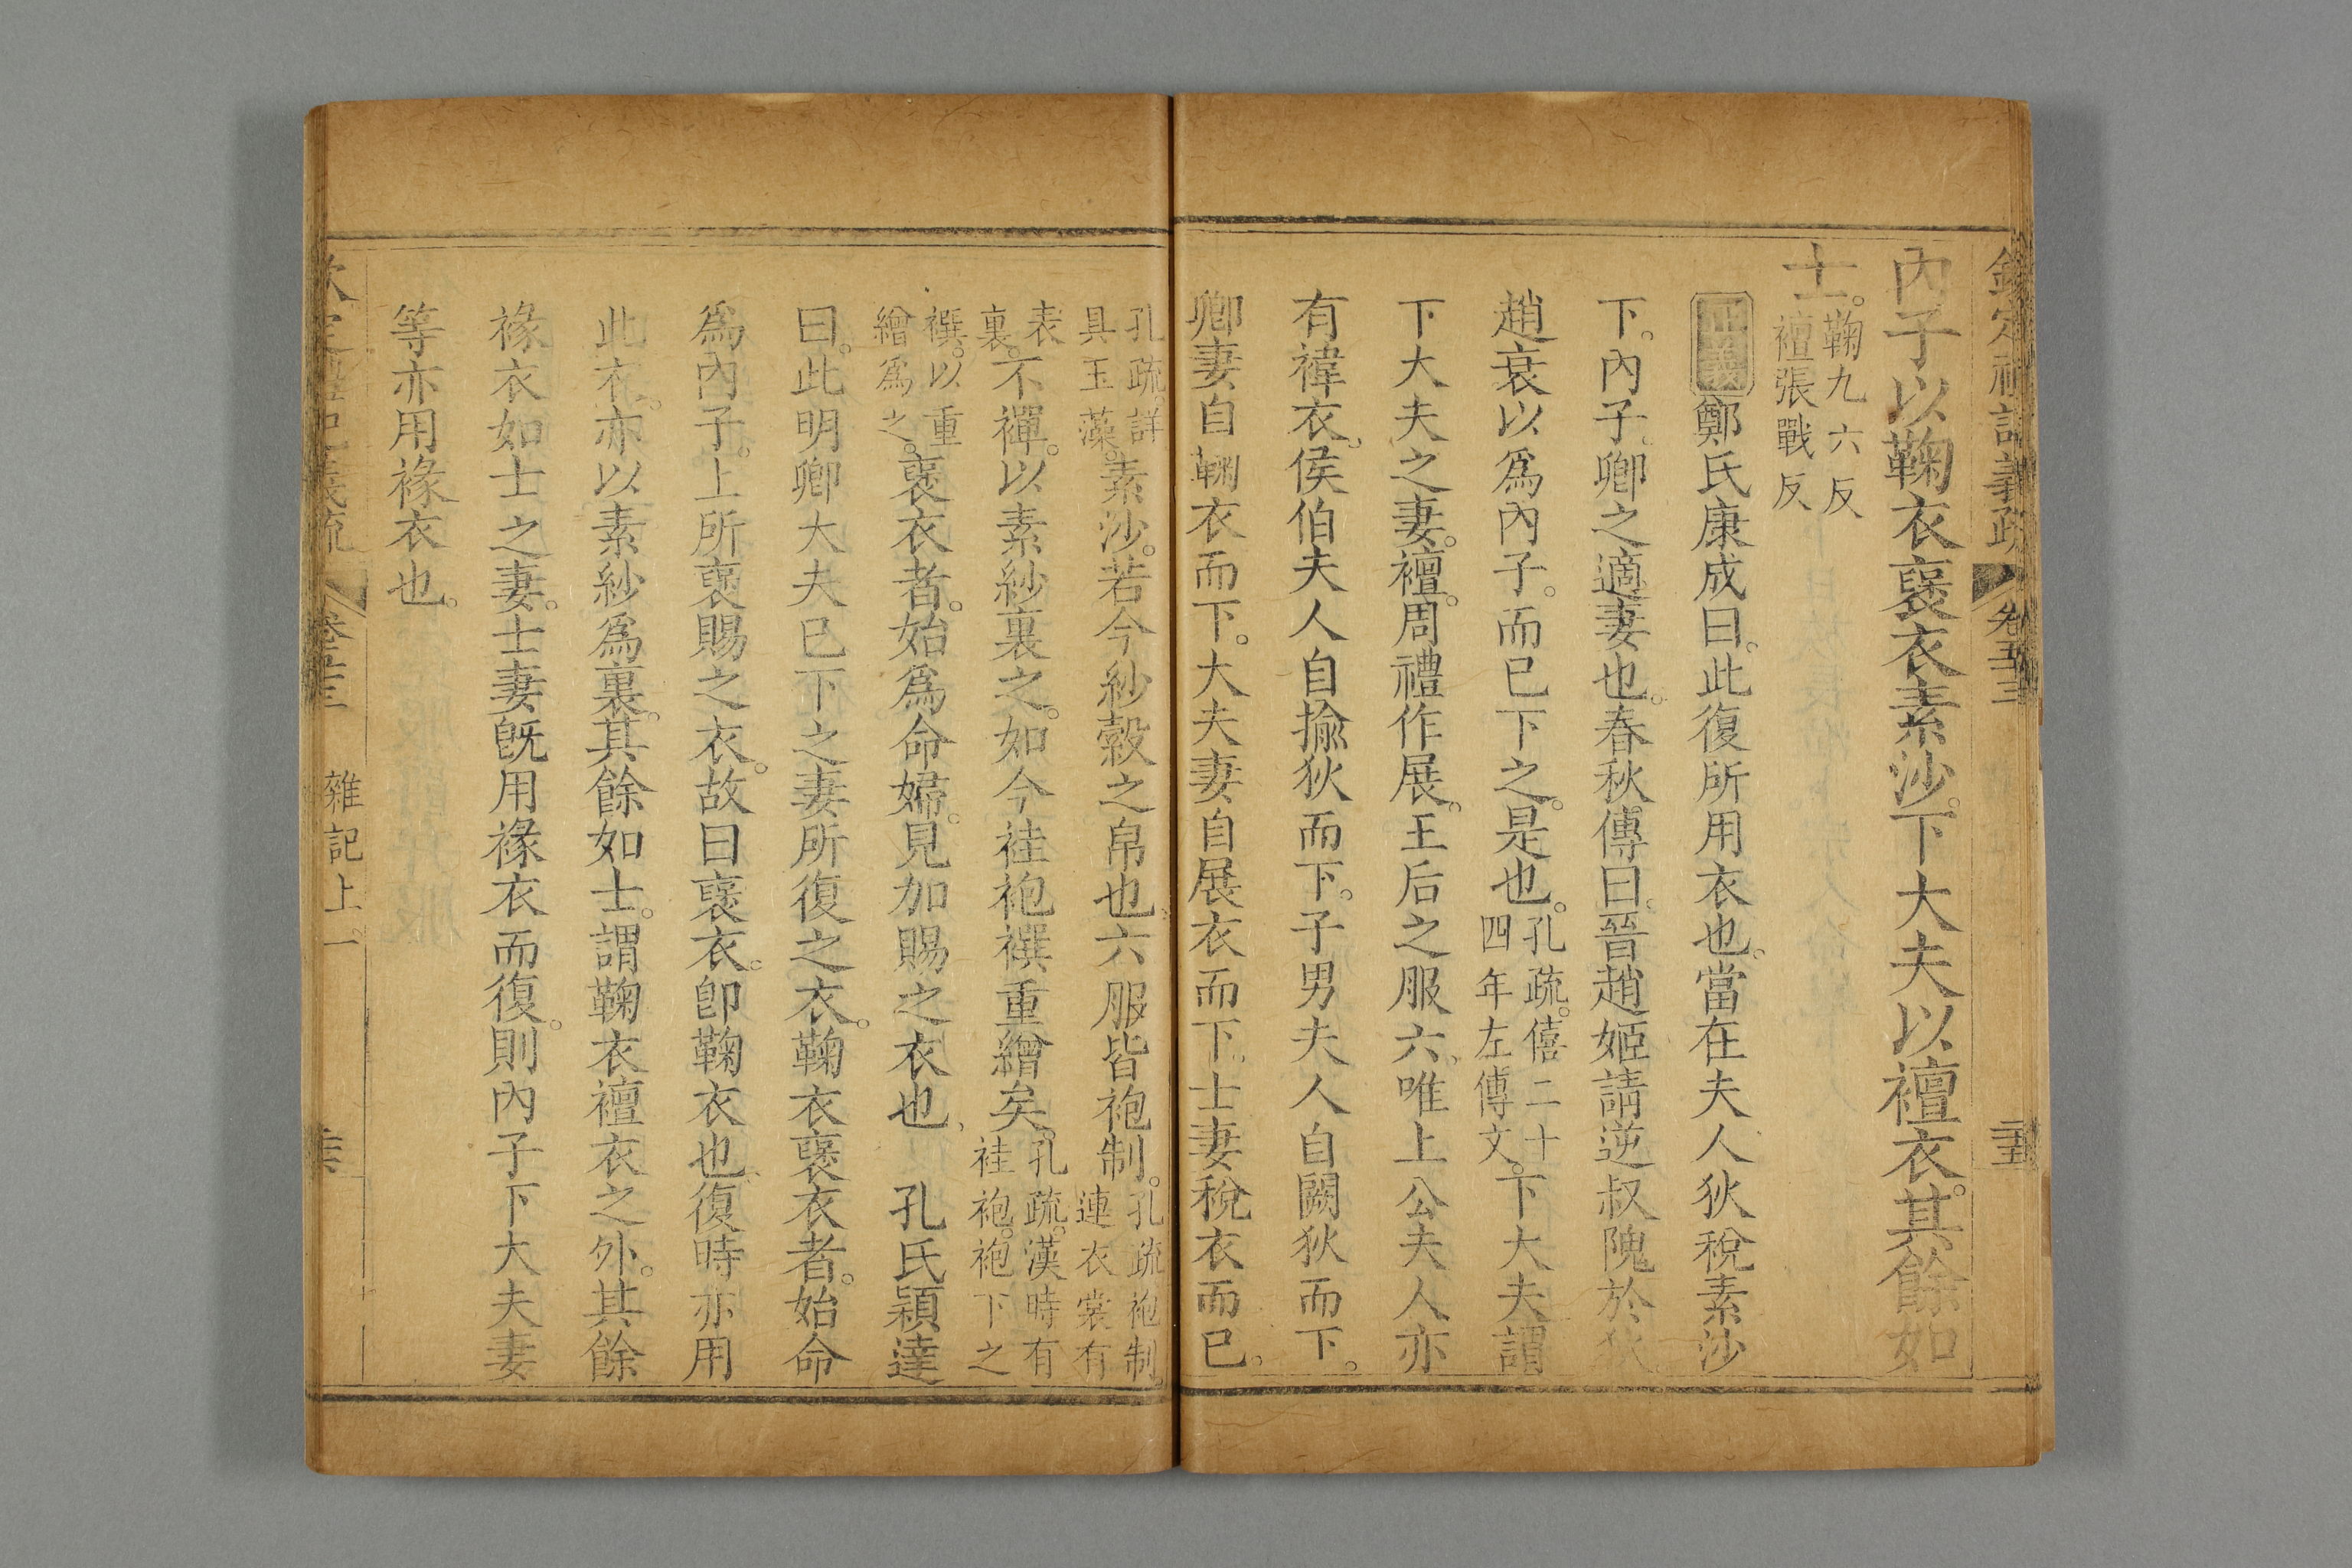 欽定禮記義疏 卷五十三 二十五
內子以鞠衣褒衣素沙。下大夫以襢衣。其餘如
士。鞠九六反襢張戰反
正義鄭氏康成曰。此復所用衣也。當在夫人狄稅素沙
下。內子。卿之適妻也。春秋傳曰。晉趙姬請逆叔隗於狄。
趙衰以爲內子。而已下之。是也。孔疏。僖二十四年左傳文。下大夫。謂
下大夫之妻。襢。周禮作展。王后之服六。唯上公夫人亦
有褘衣。侯伯夫人自揄狄而下。子男夫人自闕狄而下。
卿妻自鞠衣而下。大夫妻自展衣而下。士妻稅衣而已。
孔疏。詳具玉藻。素沙。若今紗縠之帛也。六服皆袍制。孔疏袍制。連衣裳有
表裏。不禪。以素紗裏之。如今袿袍襈重繒矣。孔疏。漢時有袿袍。袍下之
襈。以重繒爲之。褒衣者。始爲命婦。見加賜之衣也。 孔氏穎達
曰。此明卿大夫已下之妻所復之衣。鞠衣褒衣者。始命
爲內子。上所褒賜之衣。故曰褒衣。卽鞠衣也。復時亦用
此衣。亦以素紗爲裏。其餘如士。謂鞠衣襢衣之外。其餘
褖衣如士之妻。士妻旣用褖衣而復。則內子下大夫妻
等亦用褖衣也。
欽定禮記義疏 卷五十三 雜記上一